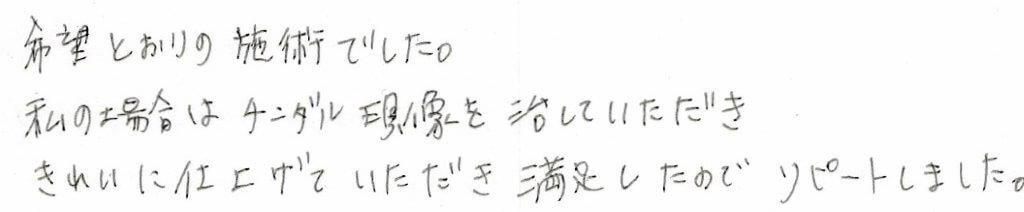 希望とおりの施術でした。
私の場合はチンダル現像を治していただき
きれいに仕上げていただき満足したのでリピートしました。